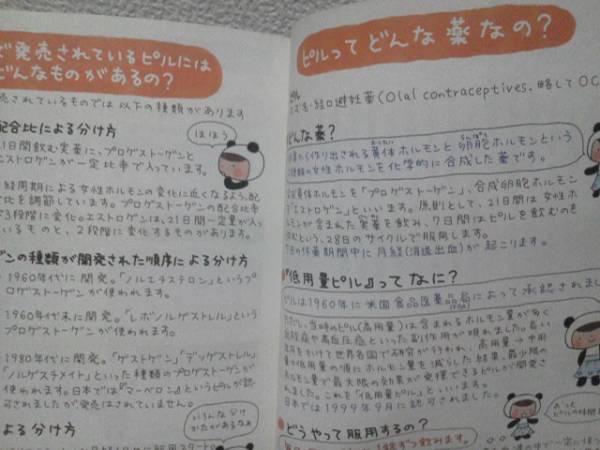 で発売されているピルには
どんなものがあるの？
売されているものでは以下の種類があります
配合比による分け方
ほほう
1日間飲む実薬に、プロゲストーゲンと
エストロゲンが一定比率で入っています。
経周期による女性ホルモンの変化に近くなるよう、配
比を調節しています。プロゲストーゲンの配合比率
3段階に変化。エストロゲンは、21日間一定量が入っ
いるものと、2段階に変化するものがあります。
ンの種類が開発された順序による分け方
1960年代に開発。「ノルエチステロン」というプ
ロゲストーゲンが使われます。
1960年代末に開発。「レボノルゲストレル」という
プロゲストーゲンが使われます。
1980年代に開発。「ゲストゲン」「デソゲストレル」
「ノルゲスチメイト」といった種類のプロゲストーゲンが
使われます。日本では『マーベロン』というピルが認
可されましたが発売はされていません。
いろんな分け
かたがあるなぁ
よる分け方
ピルってどんな薬なの？
を・経口避妊薬(Olal contraceptives. 略してOC
どんな薬？
から作り出される黄体ホルモンと卵胞ホルモンという
の女性ホルモンを化学的に合成した薬です。
黄体ホルモンを「プロゲストーゲン」、合成卵胞ホルモン
「エストロゲン」といいます。原則として、21日間は女性ホ
ルモンが含まれた実薬を飲み、7日間はピルを飲むのを
むという、28日のサイクルで服用します。
の休薬期間中に月経(消退出血)が起こります。
『低用量ピル』ってなに？
ピルは1960年に米国食品医薬品局によって承認されまし
ただし、当時のピル(高用量)は含まれるホルモン量が多く
血栓症や高血圧症といった副作用が現れました。長い
月をかけて世界各国で研究が行われ、高用量→中用
量→低用量の順にホルモン量を減らした結果、最少限の
ホルモン量で最大限の効果が発揮できるピルが開発さ
れました。これを「低用量ピル」といいます。
日本では1999年9月に認可されました。
どうやって服用するの？
錠ずつ飲みます。